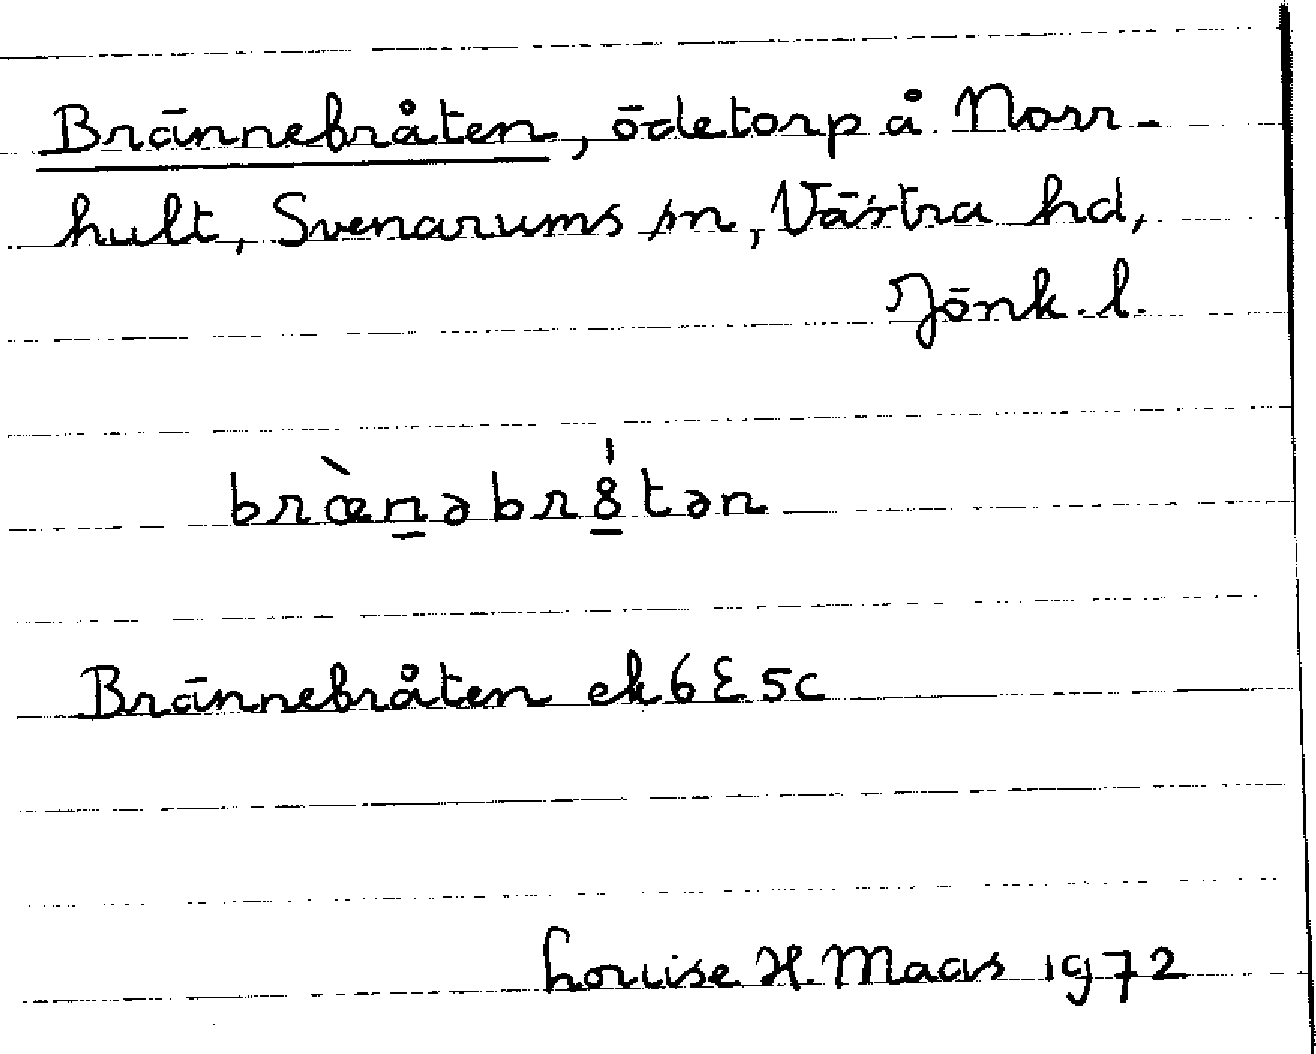 Brännebråten, ödetorp å Norr-
hult, Svenarums sn, Västra hd,
Jönk. l.
bræ̀n̠əbr8̠́tən
Brännebråten ek 6E 5c
Louise H. Maas 1972